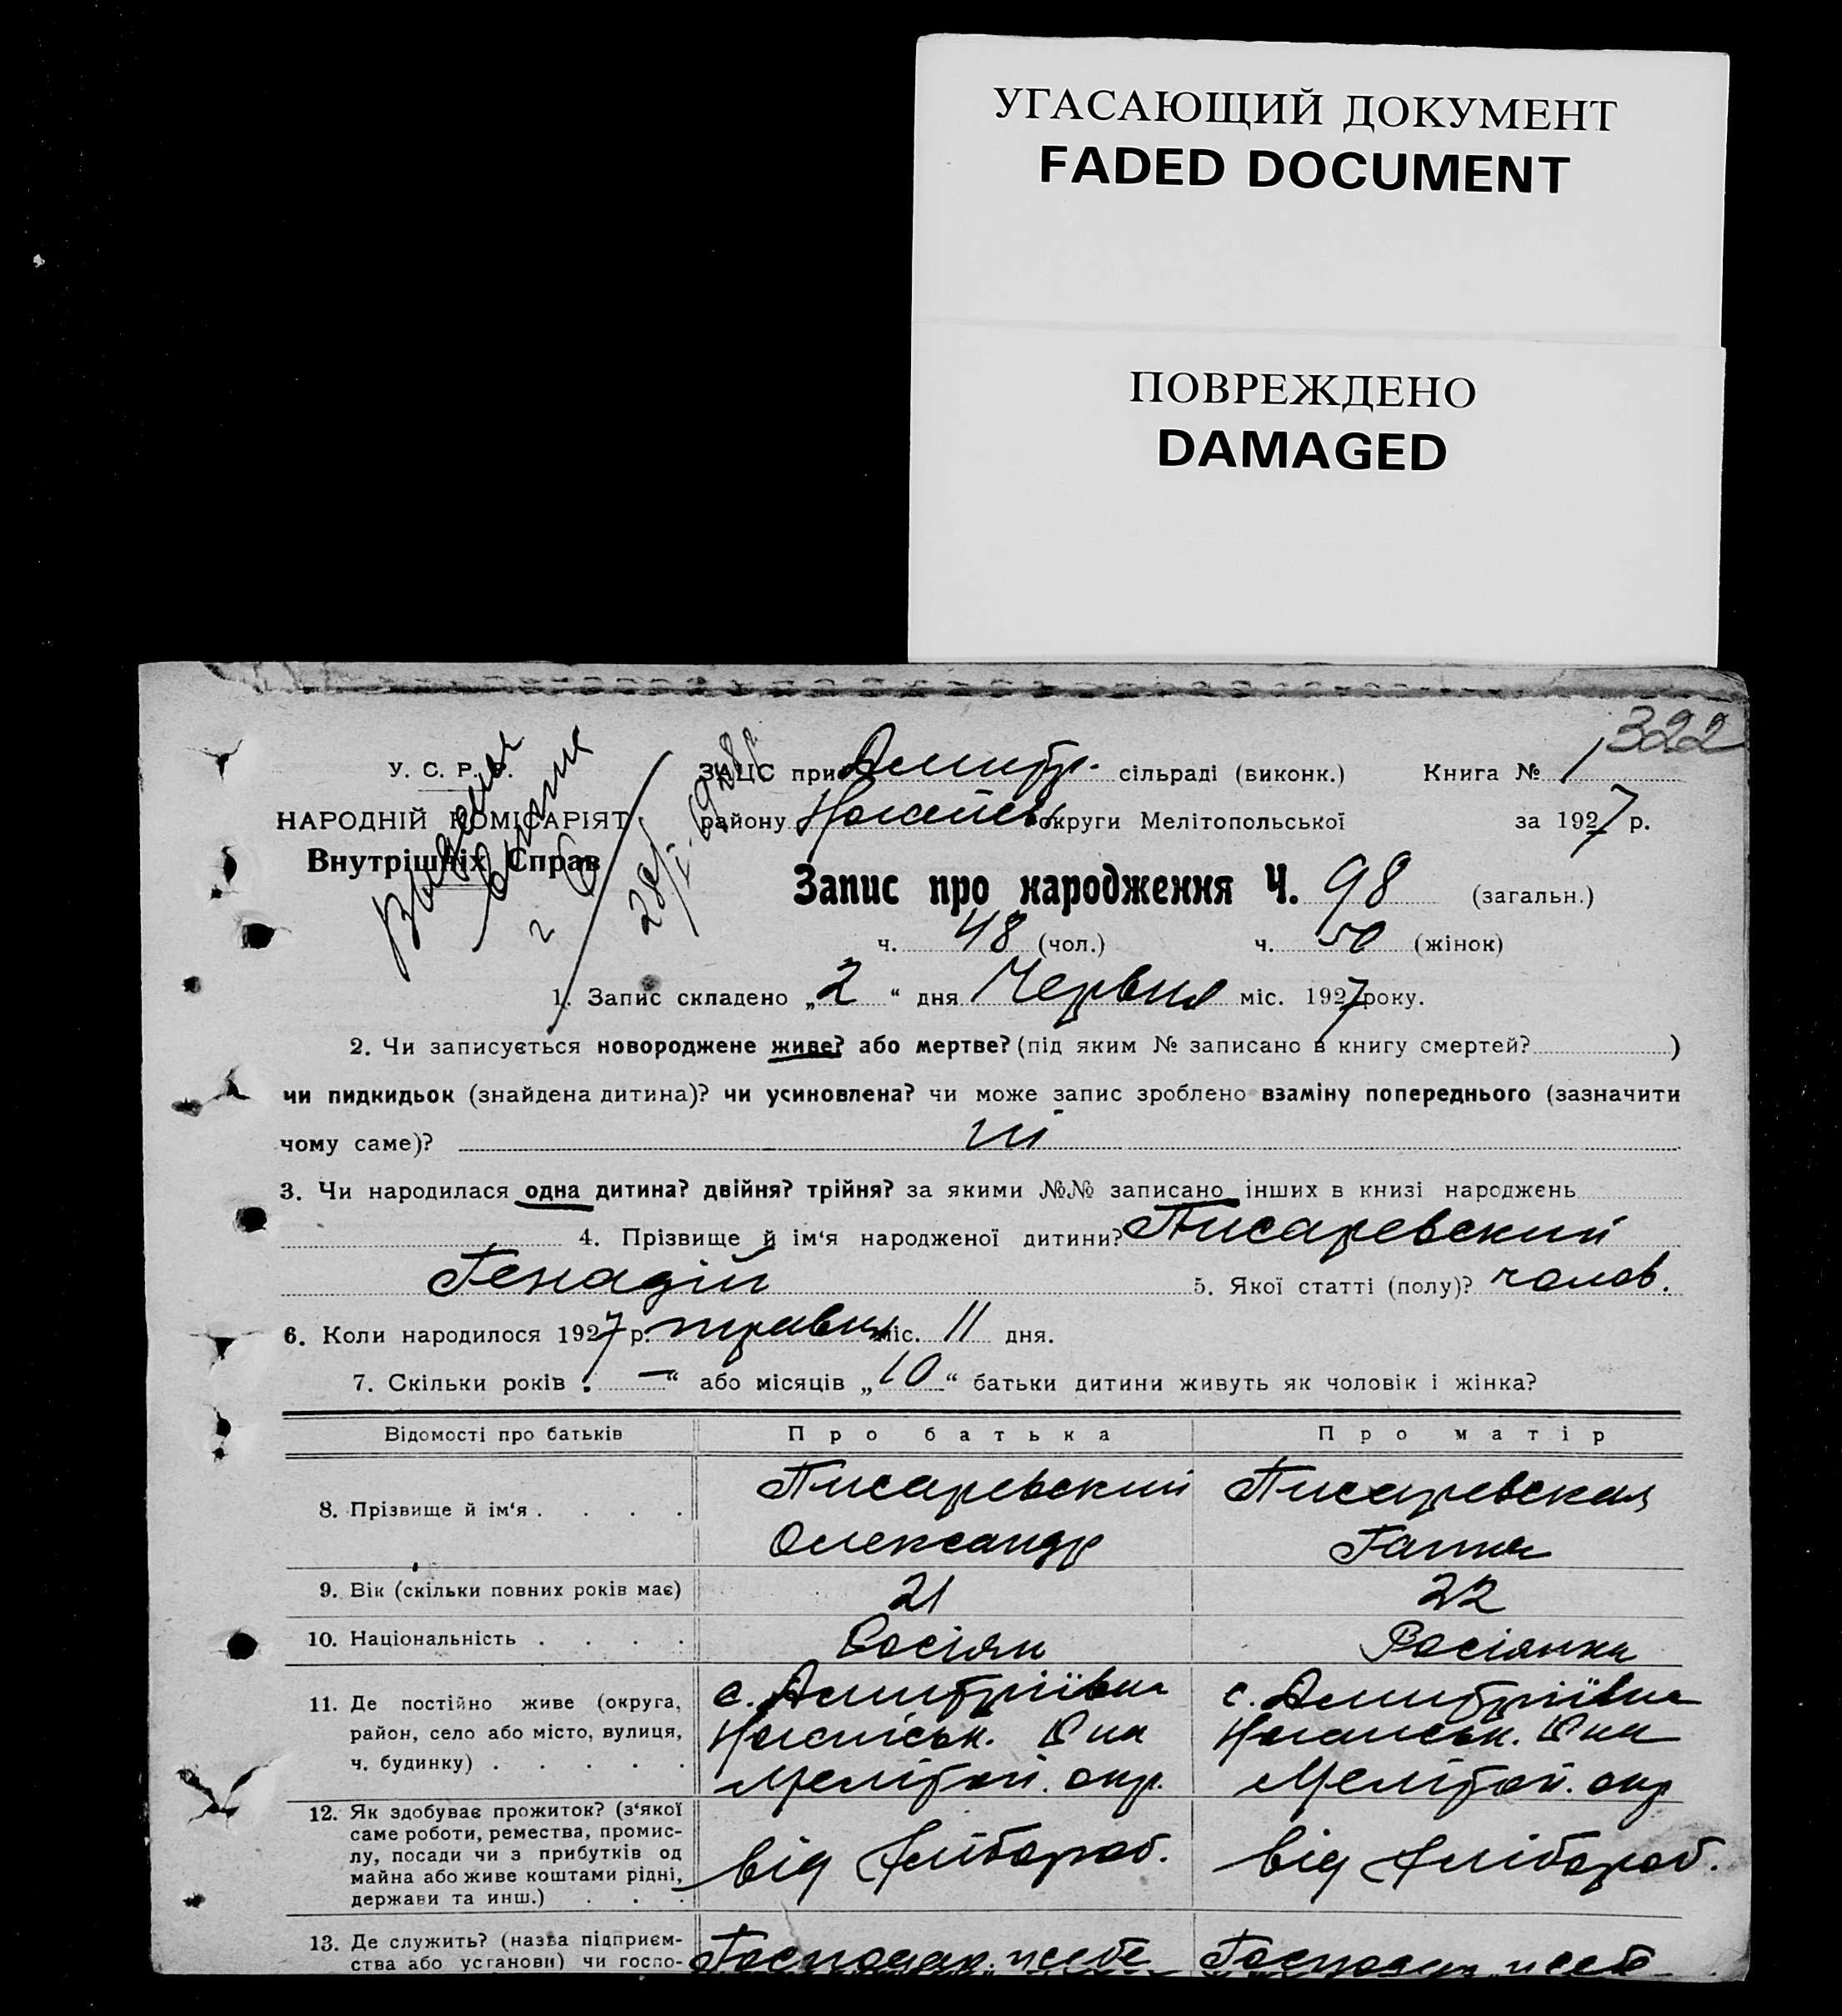 УГАСАЮЩИЙ ДОКУМЕНТ
FADED DOCUMENT
ПОВРЕЖДЕНО
DAMAGED
322
У. С. Р. Р.
НАРОДНІЙ КОМІСАРІЯТ
Внутрішніх Справ
28/I-1928р.
ЗАЦС при Дмитр. сільраді (виконк.) Книга № 1
району Ногайськ округи Мелітопольської за 1927 р.
Запис про народження Ч. 98 (загальн.)
ч. 48 (чол.) ч. 50 (жінок)
1. Запис складено „2“ дня Червня міс. 1927 року.
2. Чи записується новороджене живе? або мертве? (під яким № записано в книгу смертей? )
чи пидкидьок (знайдена дитина)? чи усиновлена? чи може запис зроблено взаміну попереднього (зазначити
чому саме)? ні
3. Чи народилася одна дитина? двійня? трійня? за якими №№ записано інших в книзі народжень
4. Прізвище й ім'я народженої дитини? Писаревский
Генадій 5. Якої статті (полу)? чолов.
6. Коли народилося 1927 р. травня міс. 11 дня.
7. Скільки років „—“ або місяців „10“ батьки дитини живуть як чоловік і жінка?
Відомості про батьків Про батька Про матір
8. Прізвище й ім'я . . . . Писаревский Писаревская
Олександр Ганна
9. Вік (скільки повних років має) 21 22
10. Національність . . . . Росіян Росіянка
11. Де постійно живе (округа, с. Дмитріївка с. Дмитріївка
район, село або місто, вулиця, Ногайськ. Ногайськ.
ч. будинку) . . . . . Меліտոп. окр. Меліտոп. окр
12. Як здобуває прожиток? (з'якої
саме роботи, ремества, промис-
лу, посади чи з прибутків од від хлібороб. від хлібороб.
майна або живе коштами рідні,
держави та инш.) . . .
13. Де служить? (назва підприєм-
ства або установи) чи госпо- Господар. Господар.